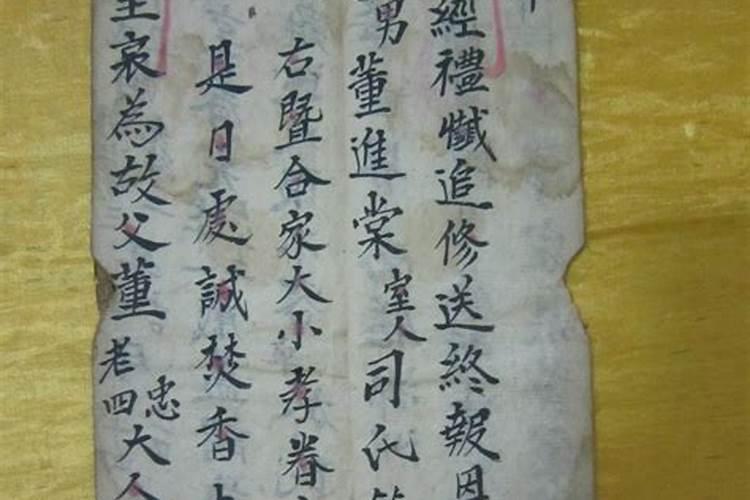 經禮懺追修送終報恩
男董進棠室人司氏
右暨合家大小孝眷
是日處誠焚香
哀為故父董老四忠大人